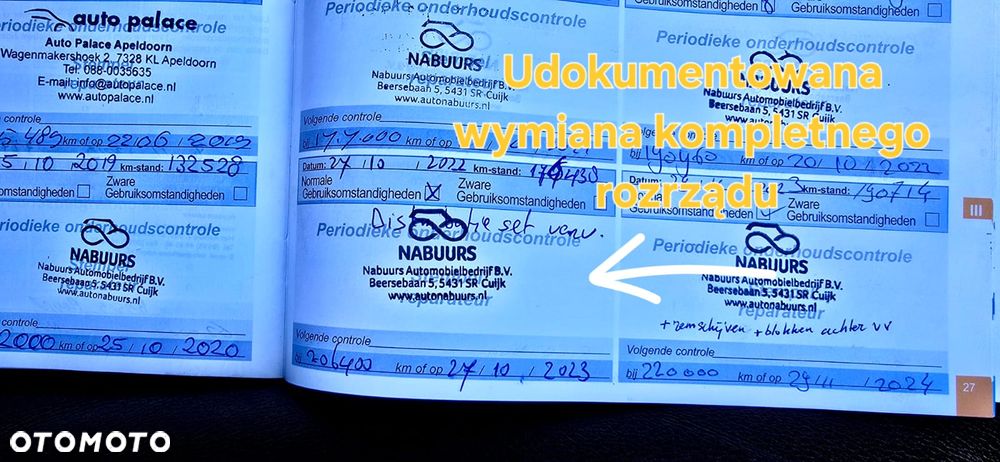 auto palace
onderhoudscontrole
Auto Palace Apeldoorn
Wagenmakershoek 2, 7328 KL Apeldoorn
Tel: 088-0035635
E-mail: info@autopalace.nl
www.autopalace.nl
km of op 22/06/2019
10/2019 km-stand: 132528
omstandigheden Zware Gebruiksomstandigheden
Periodieke onderhoudscontrole
NABUURS
Nabuurs Automobielbedrijf B.V.
Beersebaan 5, 5431 SR Cuijk
www.autonabuurs.nl
controle
2000 km of op 25/10/2020
Periodieke onderhoudscontrole
NABUURS
Nabuurs Automobielbedrijf B.V.
Beersebaan 5, 5431 SR Cuijk
www.autonabuurs.nl
Volgende controle
bij 177.000 km of op
Datum: 27/10/2022 km-stand:
Normale Gebruiksomstandigheden X Zware Gebruiksomstandigheden
set verv.
Periodieke onderhoudscontrole
NABUURS
Nabuurs Automobielbedrijf B.V.
Beersebaan 5, 5431 SR Cuijk
www.autonabuurs.nl
reparateur
Volgende controle
bij 206400 km of op 27/10/2023
Gebruiksomstandigheden Gebruiksomstandigheden
Periodieke onderhoudscontrole
Nabuurs Automobielbedrijf B.V.
Beersebaan 5, 5431 SR Cuijk
www.autonabuurs.nl
Volgende controle
km of op 20/10/2022
km-stand: 190714
Zware Gebruiksomstandigheden
Periodieke onderhoudscontrole
NABUURS
Nabuurs Automobielbedrijf B.V.
Beersebaan 5, 5431 SR Cuijk
www.autonabuurs.nl
reparateur
+ remschijven + blokken achter VV
Volgende controle
bij 220000 km of op 29/11/2024
III
27
Udokumentowana
wymiana kompletnego
rozrządu
OTOMOTO